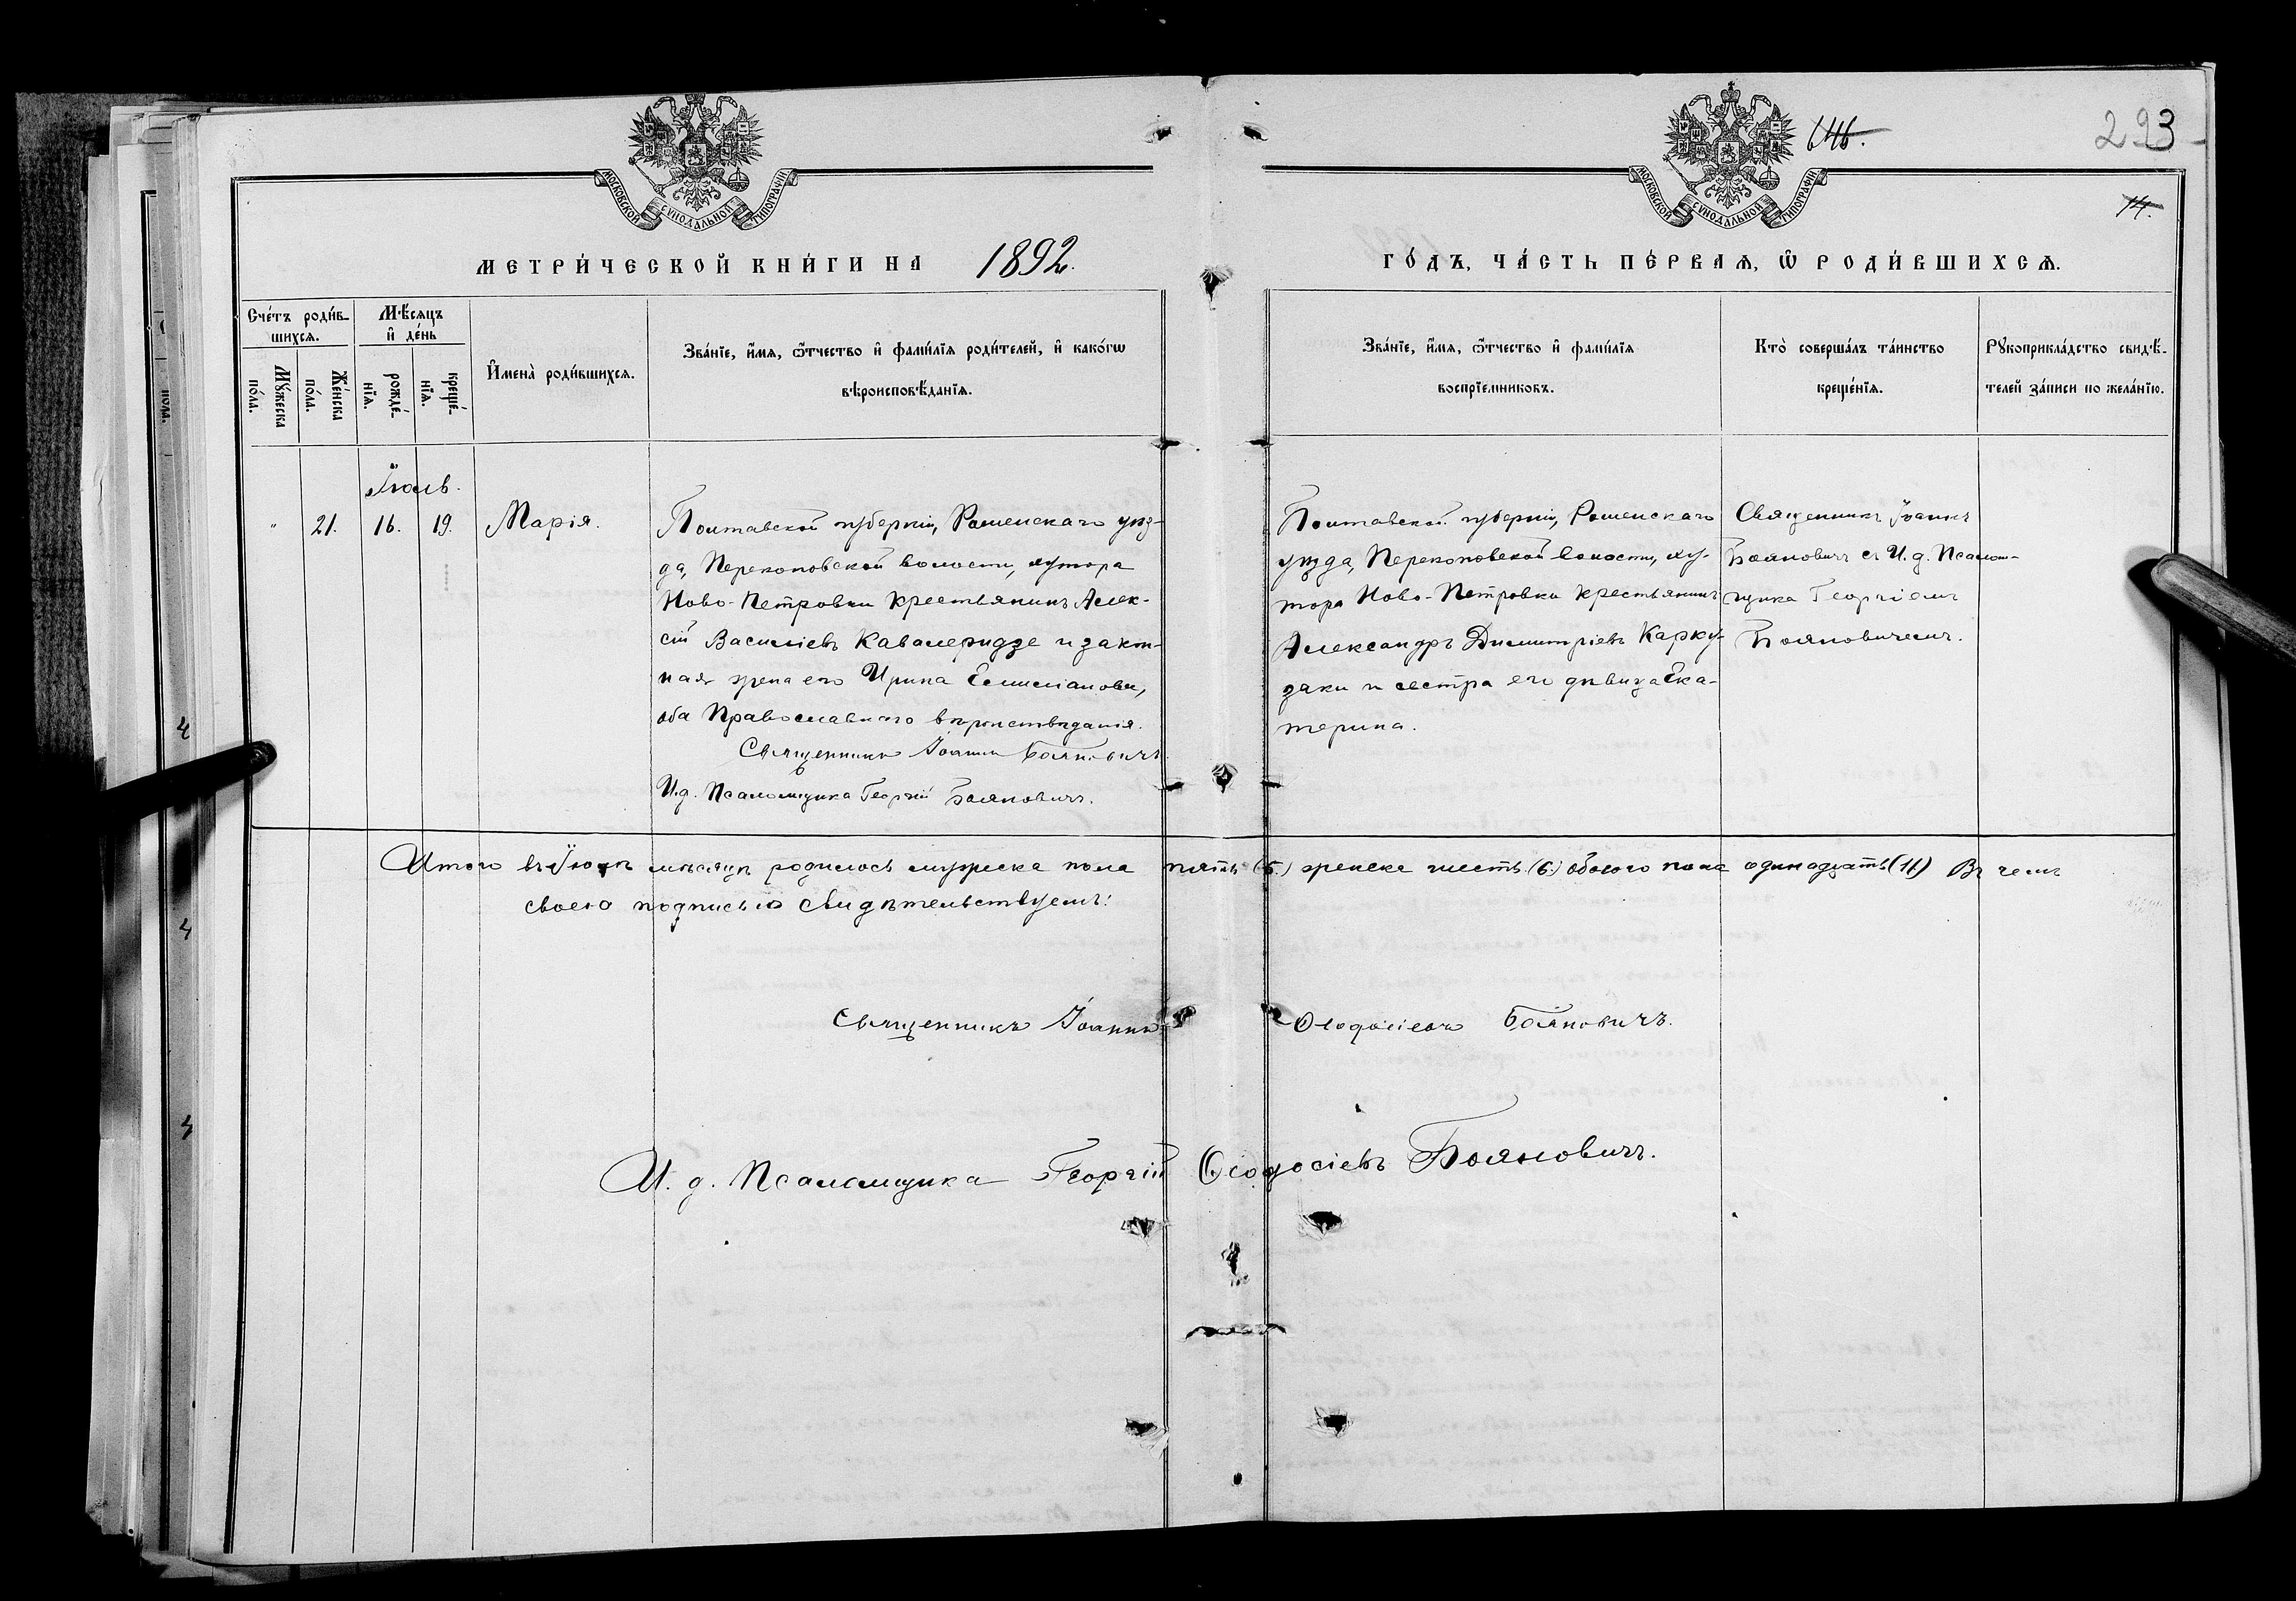 МОСКОВСКОЙ СѴНОДАЛЬНОЙ ТИПОГРАФІИ
МОСКОВСКОЙ СѴНОДАЛЬНОЙ ТИПОГРАФІИ
646.
293
14.
МЕТРИ́ЧЕСКОЙ КНИ́ГИ НА 1892.
ГО́ДЪ, ЧА́СТЬ ПЕ́РВАѦ, Ѡ РОДИ́ВШИХСѦ.
Сче́тъ роди́в-
шихсѧ.
Мѣ́сѧцъ
и҆ де́нь
Мꙋ́жеска
по́ла.
Же́нска
по́ла.
рожде́-
нїѧ.
креще́-
нїѧ.
И҆мена̀ роди́вшихсѧ.
Зва́нїе, и҆́мѧ, ѻ҆́тчество и҆ фами́лїѧ роди́телей, и҆ како́гѡ
вѣроисповѣ́данїѧ.
Зва́нїе, и҆́мѧ, ѻ҆́тчество и҆ фами́лїѧ
воспрїе́мниковъ.
Кто̀ соверша́лъ та́инство
креще́нїѧ.
Рꙋкоприкла́дство свидѣ́-
телей за́писи по жела́нїю.
Іюль.
" 21. 16. 19. Марія.
Полтавской губерніи, Роменскаго уѣз-
да, Перекоповской волости, хутора
Ново-Петровки крестьянинъ Алек-
сій Василіевъ Кавалеридзе и закон-
ная жена его Ирина Емиліанова,
оба Православнаго вѣроисповѣданія.
Священникъ Іоаннъ Бояновичъ
И.д. Псаломщика Георгій Бояновичъ.
Полтавской губерніи, Роменскаго
уѣзда, Перекоповской волости, ху-
тора Ново-Петровки крестьянинъ
Александръ Димитріевъ Карку-
даки и сестра его дѣвица Ека-
терина.
Священникъ Іоаннъ
Бояновичъ съ И.д. Псалом-
щика Георгіемъ
Бояновичемъ.
Итого въ Іюлѣ мѣсяцѣ родилось мужеска пола пять (5.) женска шесть (6.) обоего пола одинадцать (11) Въ чемъ
своею подписью свидѣтельствуемъ:
Священникъ Іоаннъ Ѳеодосіевъ Бояновичъ.
И. д. Псаломщика Георгій Ѳеодосіевъ Бояновичъ.